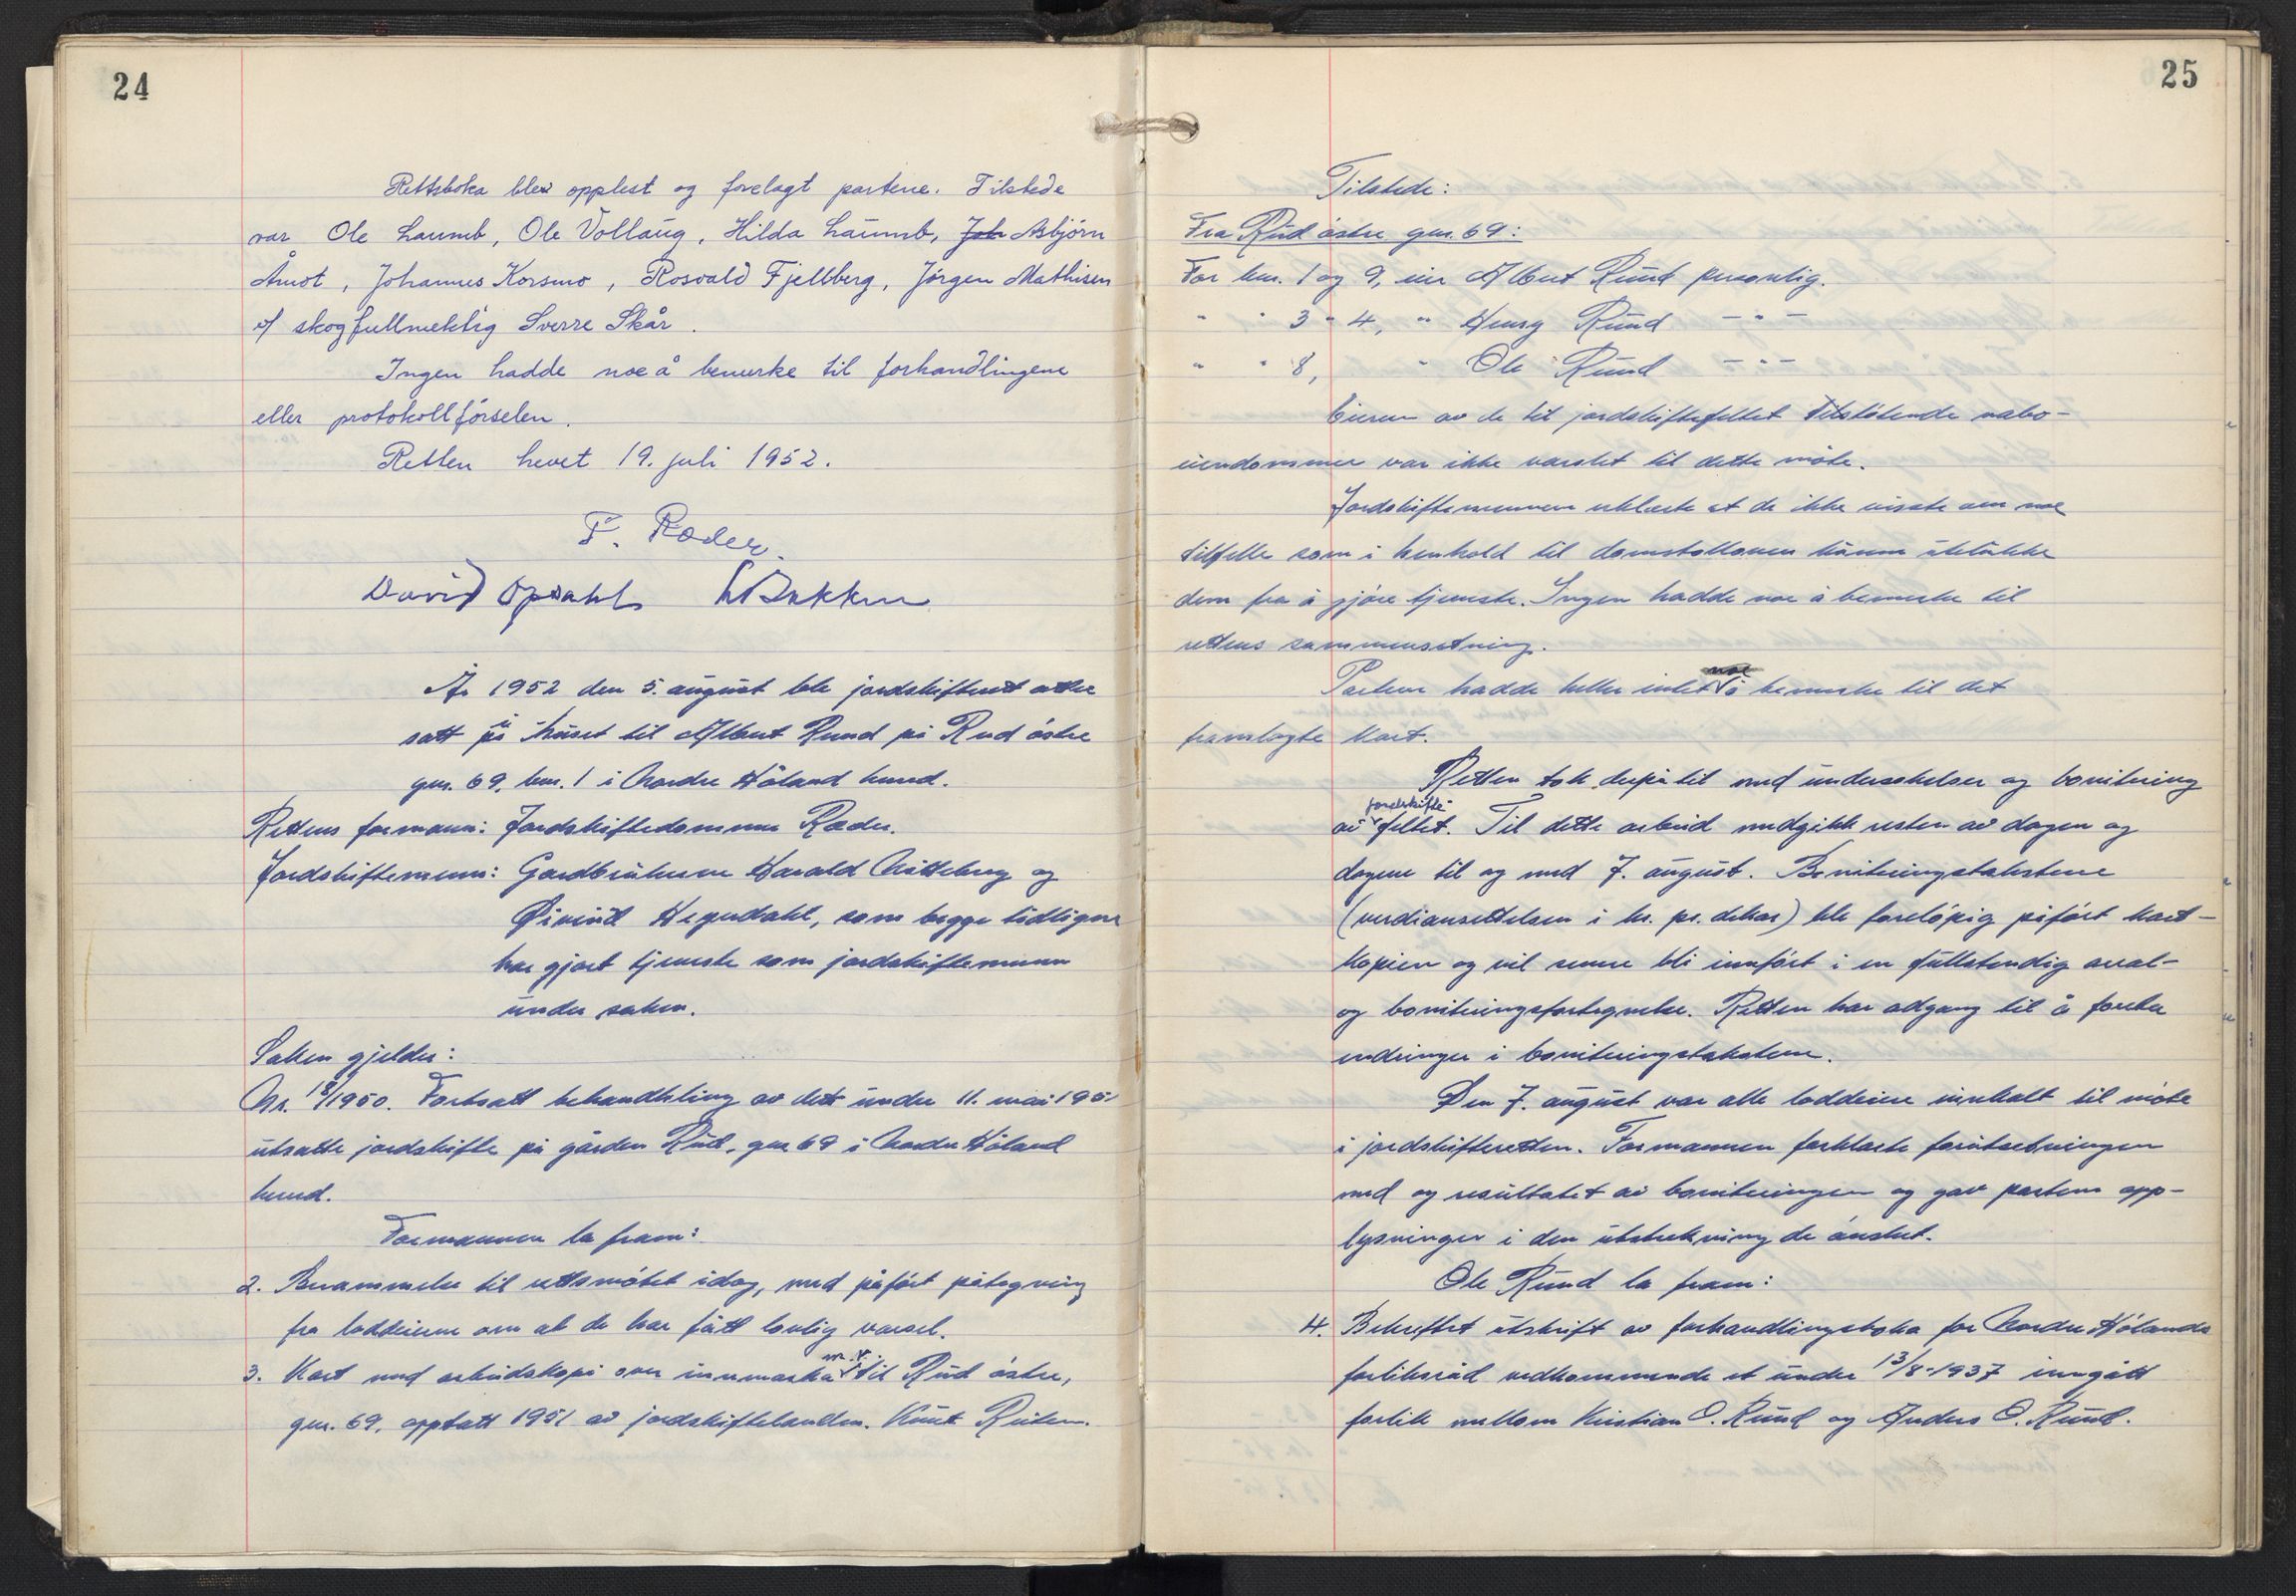 24
Rettsboka blev opplest og forelagt partene. Tilstede
var Ole Laumb, Ole Vollaug, Hilda Laumb, Joh Asbjörn
Åmot, Johannes Korsmo, Rosvald Fjellberg, Jörgen Mathisen
v/ skogfullmektig Sverre Skår.
Ingen hadde noe å bemerke til forhandlingene
eller protokollförselen.
Retten hevet 19. juli 1952.
F. Ræder.
David Opdahl
År 1952 den 5. august ble jordskifterett atter
satt på i huset til Albert Ruud på Rud östre
gnr. 69, bnr. 1 i Nordre Höland herred.
Rettens formann: Jordskiftedommer Ræder.
Jordskiftemenn: Gardbrukerne Harald Nitteberg og
Øivind Hegndahl, som begge tidligere
har gjort tjeneste som jordskiftemenn
under saken.
Saken gjelder:
Nr. 18/1950. Fortsatt behandling av det under 11. mai 195
utsatte jordskifte på gården Rud, gnr 69 i Nordre Höland
herred.
Formannen la fram:
2. Berammelse til rettsmötet idag, med påfört påtegning
fra loddeierne om at de har fått lovlig varsel.
3. Kart med arbeidskopi over innmarka m.v. til Rud östre,
gnr. 69, opptatt 1951 av jordskiftekand. Knut
25
Tilstede:
Fra Rud östre gnr. 69:
For bnr. 1 og 9, eier Albert Ruud personlig.
" " 3 " 4, " Henry Ruud - " -
" " 8, " Ole Ruud - " -
Eierne av de til jordskiftefeltet tilstötende nabo-
eiendommer var ikke varslet til dette möte.
Jordskiftemennene erklærte at de ikke visste om noe
tilfelle som i henhold til domstolloven kunne utelukke
dem fra å gjöre tjeneste. Ingen hadde noe å bemerke til
rettens sammensetning.
Partene hadde heller intet noe å bemerke til det
framlagte kart.
Retten tok derpå til med undersökelser og bonitering
av jordskifte- feltet. Til dette arbeid medgikk resten av dagen og
dagene til og med 7. august. Boniteringstakstene
(verdiansettelsen i kr. pr. dekar) ble forelöpig påfört kart-
kopien og vil senere bli innfört i en fullstendig areal-
og boniteringsfortegnelse. Retten har adgang til å foreta
endringer i boniteringstakstene.
Den 7. august var alle loddeiere innkalt til möte
i jordskifteretten. Formannen forklarte forutsetningen
med og resultatet av boniteringen og gav partene opp-
lysninger i den utstrekning de önsket.
Ole Ruud la fram:
4. Bekreftet utskrift av forhandlingsboka for Nordre Hölands
forliksråd vedkommende et under 13/8-1937 inngått
forlik mellom Kristian O. Ruud og Anders O. Ruud.